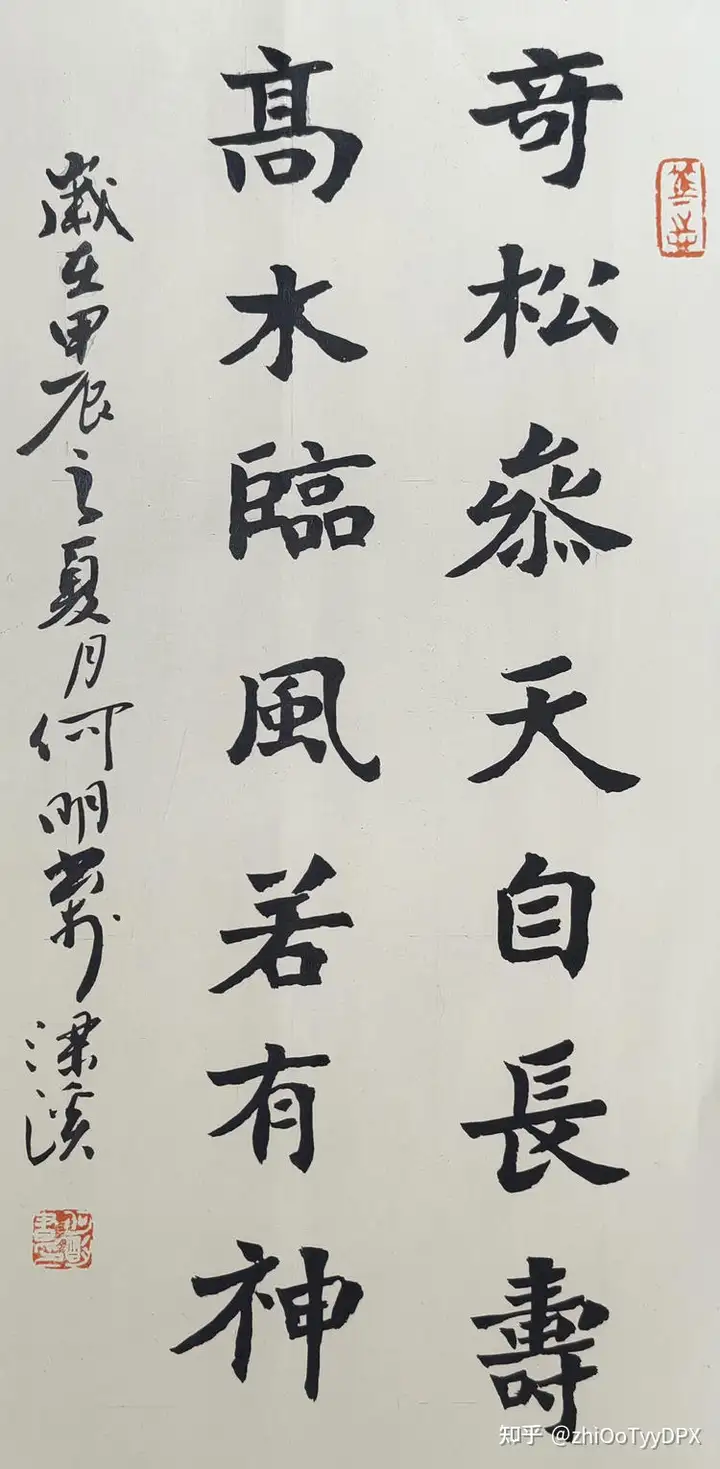 奇松叅天自長壽
高水臨風若有神
歲在甲辰之夏月何明書於梁溪
知乎 @zhiOoTyyDPX